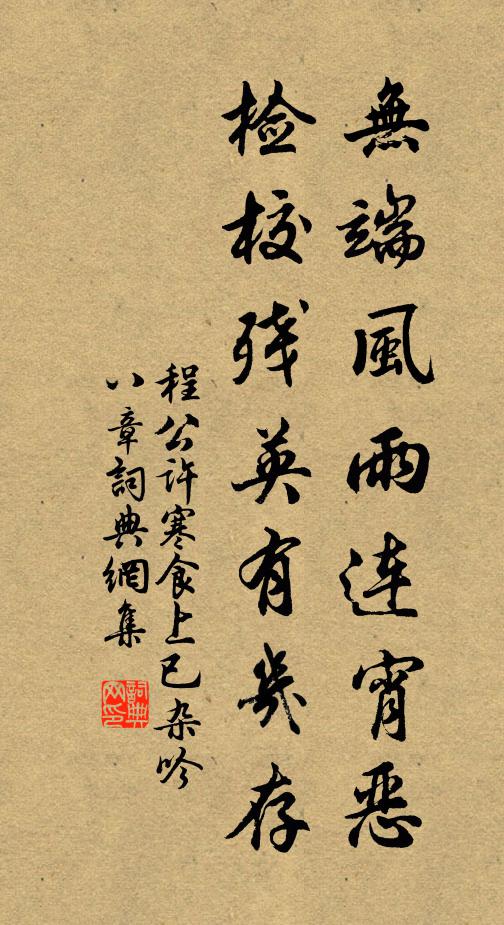 無端風雨連宵惡
檢校残英有幾存
程公许寒食上巳杂吟
八章詞典網集
詞典
网印